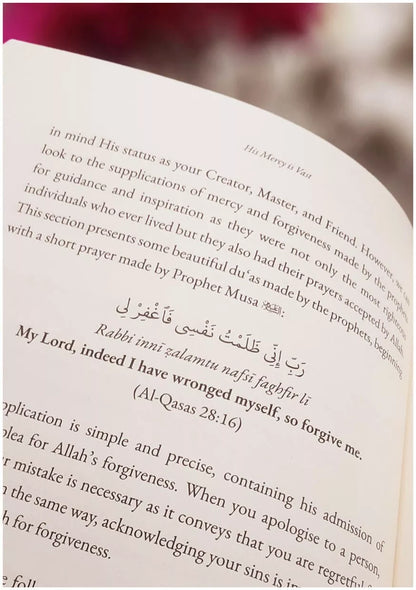 His Mercy is Vast
in mind His status as your Creator, Master, and Friend. However, we
look to the supplications of mercy and forgiveness made by the prophets
for guidance and inspiration as they were not only the most righteous
individuals who ever lived but they also had their prayers accepted by Allah.
This section presents some beautiful du‘as made by the prophets, beginning
with a short prayer made by Prophet Musa :
رَبِّ إِنِّي ظَلَمْتُ نَفْسِي فَاغْفِرْ لِي
Rabbi innī ẓalamtu nafsī faghfir lī
My Lord, indeed I have wronged myself, so forgive me.
(Al-Qasas 28:16)
pplication is simple and precise, containing his admission of
plea for Allah’s forgiveness. When you apologise to a person,
r mistake is necessary as it conveys that you are regretful
n the same way, acknowledging your sins is
h for forgiveness.